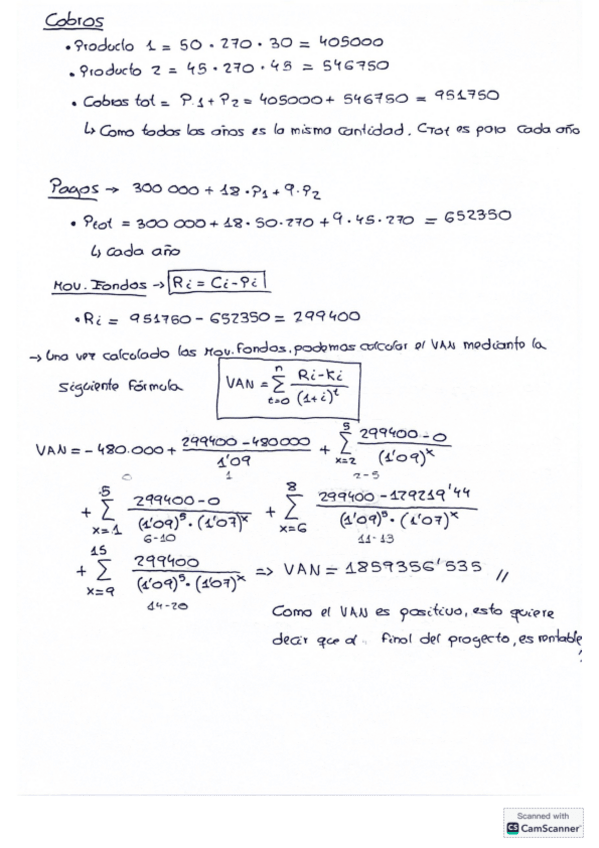 Cobros
• Producto 1 = 50 · 270 · 30 = 405000
• Producto 2 = 45 · 270 · 45 = 546750
• Cobros tot = P.1 + P2 = 405000 + 546750 = 951750
↳ Como todos los años es la misma cantidad. Ctot es para cada año
Pagos → 300 000 + 18 · P1 + 9 · P2
• Ptot = 300 000 + 18 · 50 · 270 + 9 · 45 · 270 = 652350
↳ cada año
Mov. Fondos → Ri = Ci - Pi
• Ri = 951750 - 652350 = 299400
→ Una vez calculado las Mov. Fondos, podemos calcular el VAN mediante la
siguiente fórmula VAN = n Σ t=0 Ri - Ki / (1+i)^t
VAN = - 480.000 + 299400 - 480000 / 1'09 + 5 Σ x=2 299400 - 0 / (1'09)^x
0 1 2-5
+ 5 Σ x=1 299400 - 0 / (1'09)^5 · (1'07)^x + 8 Σ x=6 299400 - 179219'44 / (1'09)^5 · (1'07)^x
6-10 11-13
+ 15 Σ x=9 299400 / (1'09)^5 · (1'07)^x => VAN = 1859356'535 //
14-20
Como el VAN es positivo, esto quiere
decir que al final del progecto, es rentable
Scanned with
CS CamScanner